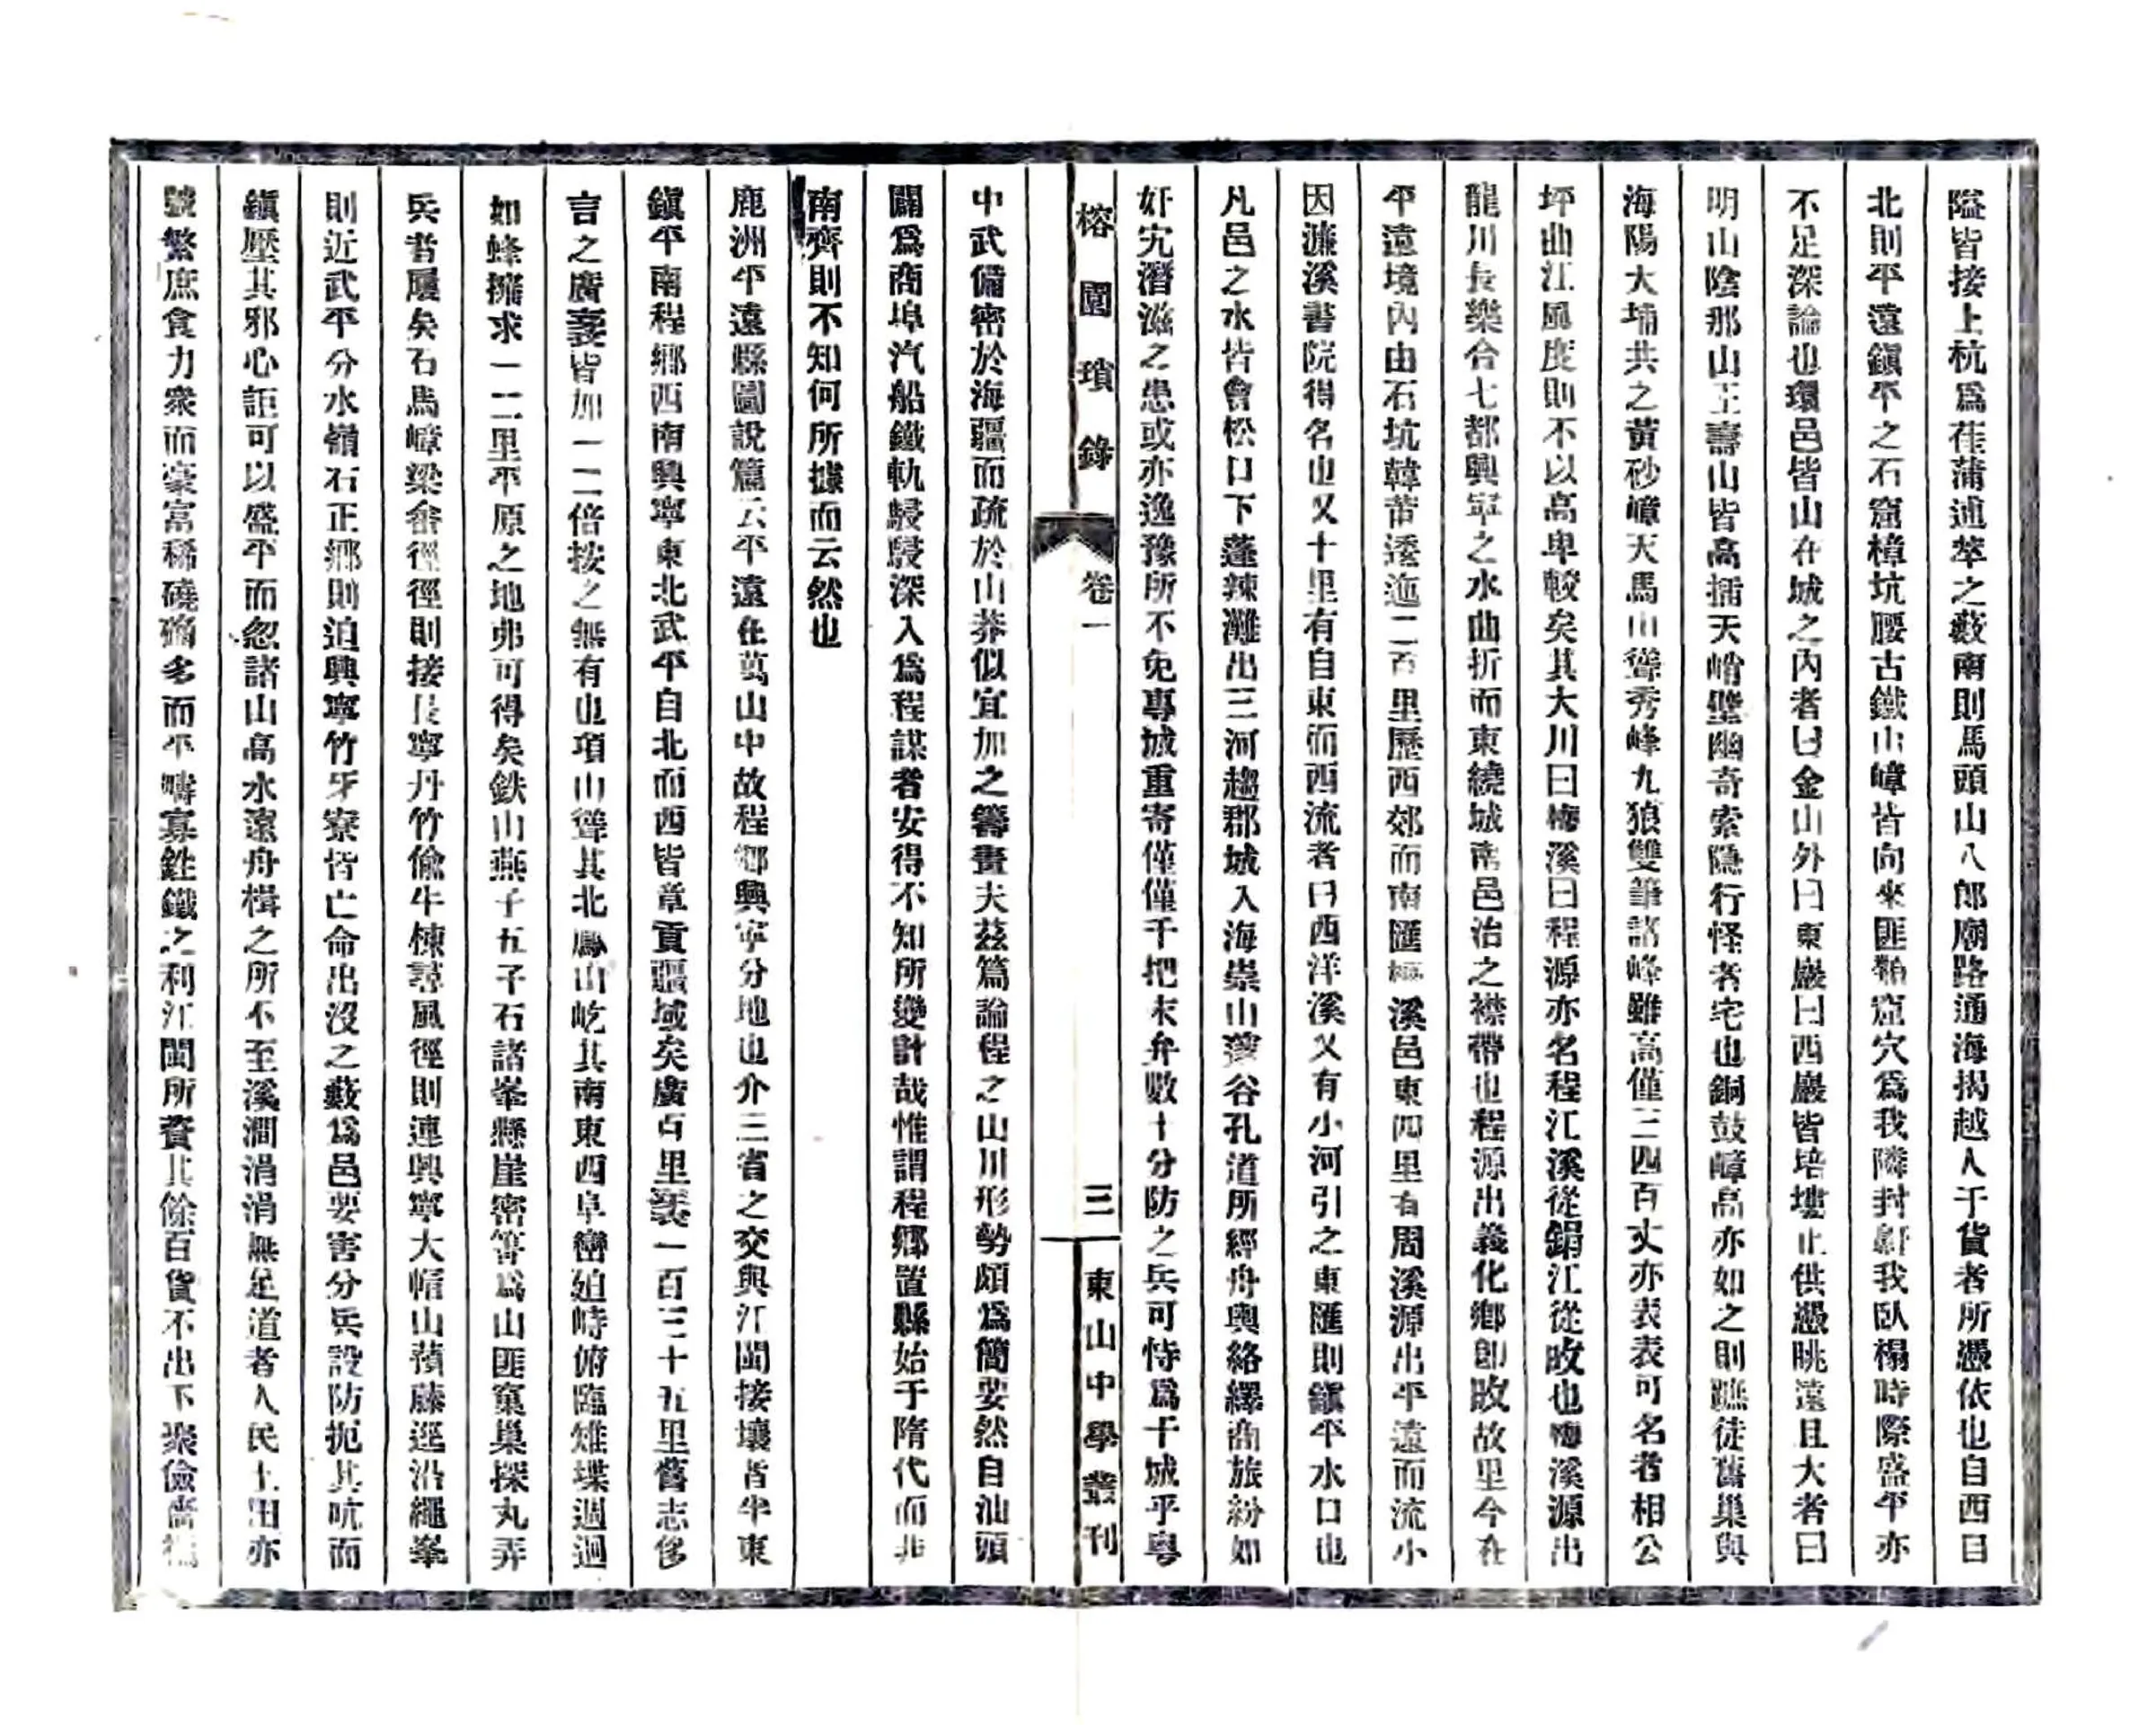 隘皆接上杭爲萑蒲逋萃之藪南則馬頭山八郎廟路通海揭越人于貨者所憑依也自西目
北則平遠鎭平之石窟樟坑腰古鐵山嶂皆向來匪類窟穴爲我隣封鼾我臥榻時際盛平亦
不足深論也環邑皆山在城之內者曰金山外曰東巖曰西巖皆培塿止供憑眺遠且大者曰
明山陰那山王壽山皆高插天峭壁幽奇索隱行怪者宅也銅鼓嶂高亦如之則醮徒舊巢與
海陽大埔共之黃砂嶂天馬山聳秀峰九狼雙筆諸峰雖高僅三四百丈亦表表可名者相公
坪曲江風度則不以高卑較矣其大川曰梅溪曰程源亦名程江溪從鋗江從旼也梅溪源出
龍川長樂合七都興寧之水曲折而東繞城南邑治之襟帶也程源出義化鄉卽旼故里今在
平遠境內由石坑韓苦逶迤二百里歷西郊而南匯梅溪邑東四里有周溪源出平遠而流小
因濂溪書院得名也又十里有自東而西流者曰西洋溪又有小河引之東匯則鎭平水口也
凡邑之水皆會松口下蓬辣灘出三河趨郡城入海崇山邃谷孔道所經舟輿絡繹商旅紛如
奸宄潛滋之患或亦逸豫所不免專城重寄僅僅千把末弁數十分防之兵可恃爲干城乎粵
榕園瑣錄
卷一
三
東山中學叢刊
中武備密於海疆而疏於山莽似宜加之籌畫夫茲篇論程之山川形勢頗爲簡要然自汕頭
闢爲商埠汽船鐵軌駸駸深入爲程謀者安得不知所變計哉惟謂程鄉置縣始于隋代而非
南齊則不知何所據而云然也
鹿洲平遠縣圖說篇云平遠在萬山中故程鄉興寧分地也介三省之交與江閩接壤者半東
鎭平南程鄉西南興寧東北武平自北而西皆章貢疆域矣廣百里袤一百三十五里舊志侈
言之廣袤皆加一二倍按之無有也項山聳其北鳳山屹其南東西阜巒廹峙俯臨雉堞週迴
如蜂擁求一二里平原之地弗可得矣鉄山燕子五子石諸峯懸崖密箐爲山匪窠巢探丸弄
兵者屢矣石馬嶂梁畲徑徑則接長寧丹竹偸牛棟尋風徑則連興寧大帽山薠藤逕沿繩峯
則近武平分水嶺石正鄉則迫興寧竹牙寮皆亡命出沒之藪爲邑要害分兵設防扼其吭而
鎭壓其邪心詎可以盛平而忽諸山高水遠舟楫之所不至溪澗涓涓無足道者人民土田亦
號繁庶食力衆而豪富稀磽确多而平疇寡銼鐵之利江閩所賚其餘百貨不出下聚儉嗇